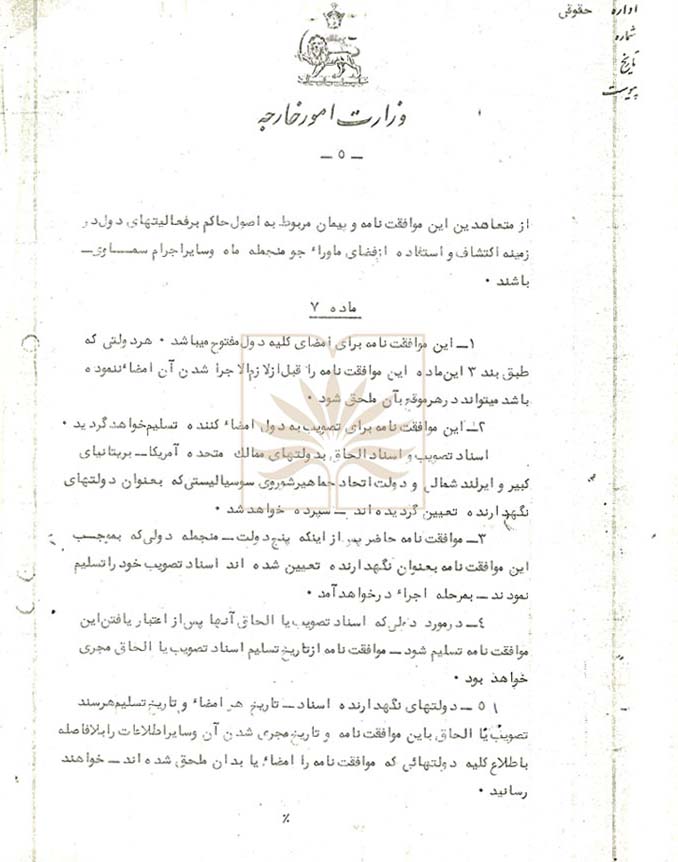 اداره حقوقی
شماره
تاریخ
پیوست
وزارت امور خارجه
ــ ۵ ــ
از متعاهدین این موافقت نامه و پیمان مربوط به اصول حاکم برفعالیتهای دول در
زمینه اکتشاف و استفاده ازفضای ماوراء جو منجمله ماه وسایراجرام سمــاوی ــ
باشند ·
ماده ۷
۱ــ این موافقت نامه برای امضای کلیه دول مفتوح میباشد · هردولتی که
طبق بند ۳ این ماده این موافقت نامه را قبل ازلازم الاجرا شدن آن امضاء ننموده
باشد میتواند درهرموقع بآن ملحق شود ·
۲ــ این موافقت نامه برای تصویب به دول امضاء کننده تسلیم خواهد گردید ·
اسناد تصویب و اسناد الحاق بدولتهای ممالک متحده آمریکا ــ بریتانیای
کبیر و ایرلند شمالی و دولت اتحاد جماهیرشوروی سوسیالیستی که بعنوان دولتهای
نگهدارنده تعیین گردیده اند ــ سپرده خواهد شد ·
۳ــ موافقت نامه حاضر پس از اینکه پنج دولت ــ منجمله دولی که بموجب
این موافقت نامه بعنوان نگهدارنده تعیین شده اند اسناد تصویب خود را تسلیم
نمودند ــ بمرحله اجراء درخواهد آمد ·
٤ــ درمورد دولی که اسناد تصویب یا الحاق آنها پس از اعتبار یافتن این
موافقت نامه تسلیم شود ــ موافقت نامه ازتاریخ تسلیم اسناد تصویب یا الحاق مجری
خواهد بود ·
۵ ــ دولتهای نگهدارنده اسناد ــ تاریخ هر امضاء و تاریخ تسلیم هرسند
تصویب یا الحاق باین موافقت نامه و تاریخ مجری شدن آن وسایراطلاعات را بلافاصله
باطلاع کلیه دولتهائی که موافقت نامه را امضاء یا بدان ملحق شده اند ــ خواهند
رسانید ·
٪